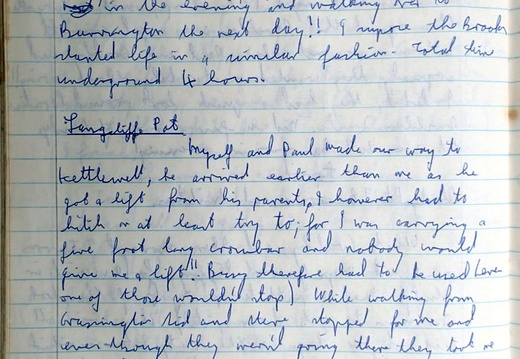 in the evening and walking over to
Burrington the next day!! I suppose the Brook
started life in a similar fashion. Total time
underground 4 hours.
Langcliffe Pot
Myself and Paul made our way to
Kettlewell, he arrived earlier than me as he
got a lift from his parents, I however had to
hitch or at least try to, for I was carrying a
five foot long crowbar and nobody would
give me a lift!! Bussy therefore had to be used (even
one of those wouldn't stop) While walking from
Grassington Sid and Steve stopped for me and
even though they weren't going there they took me